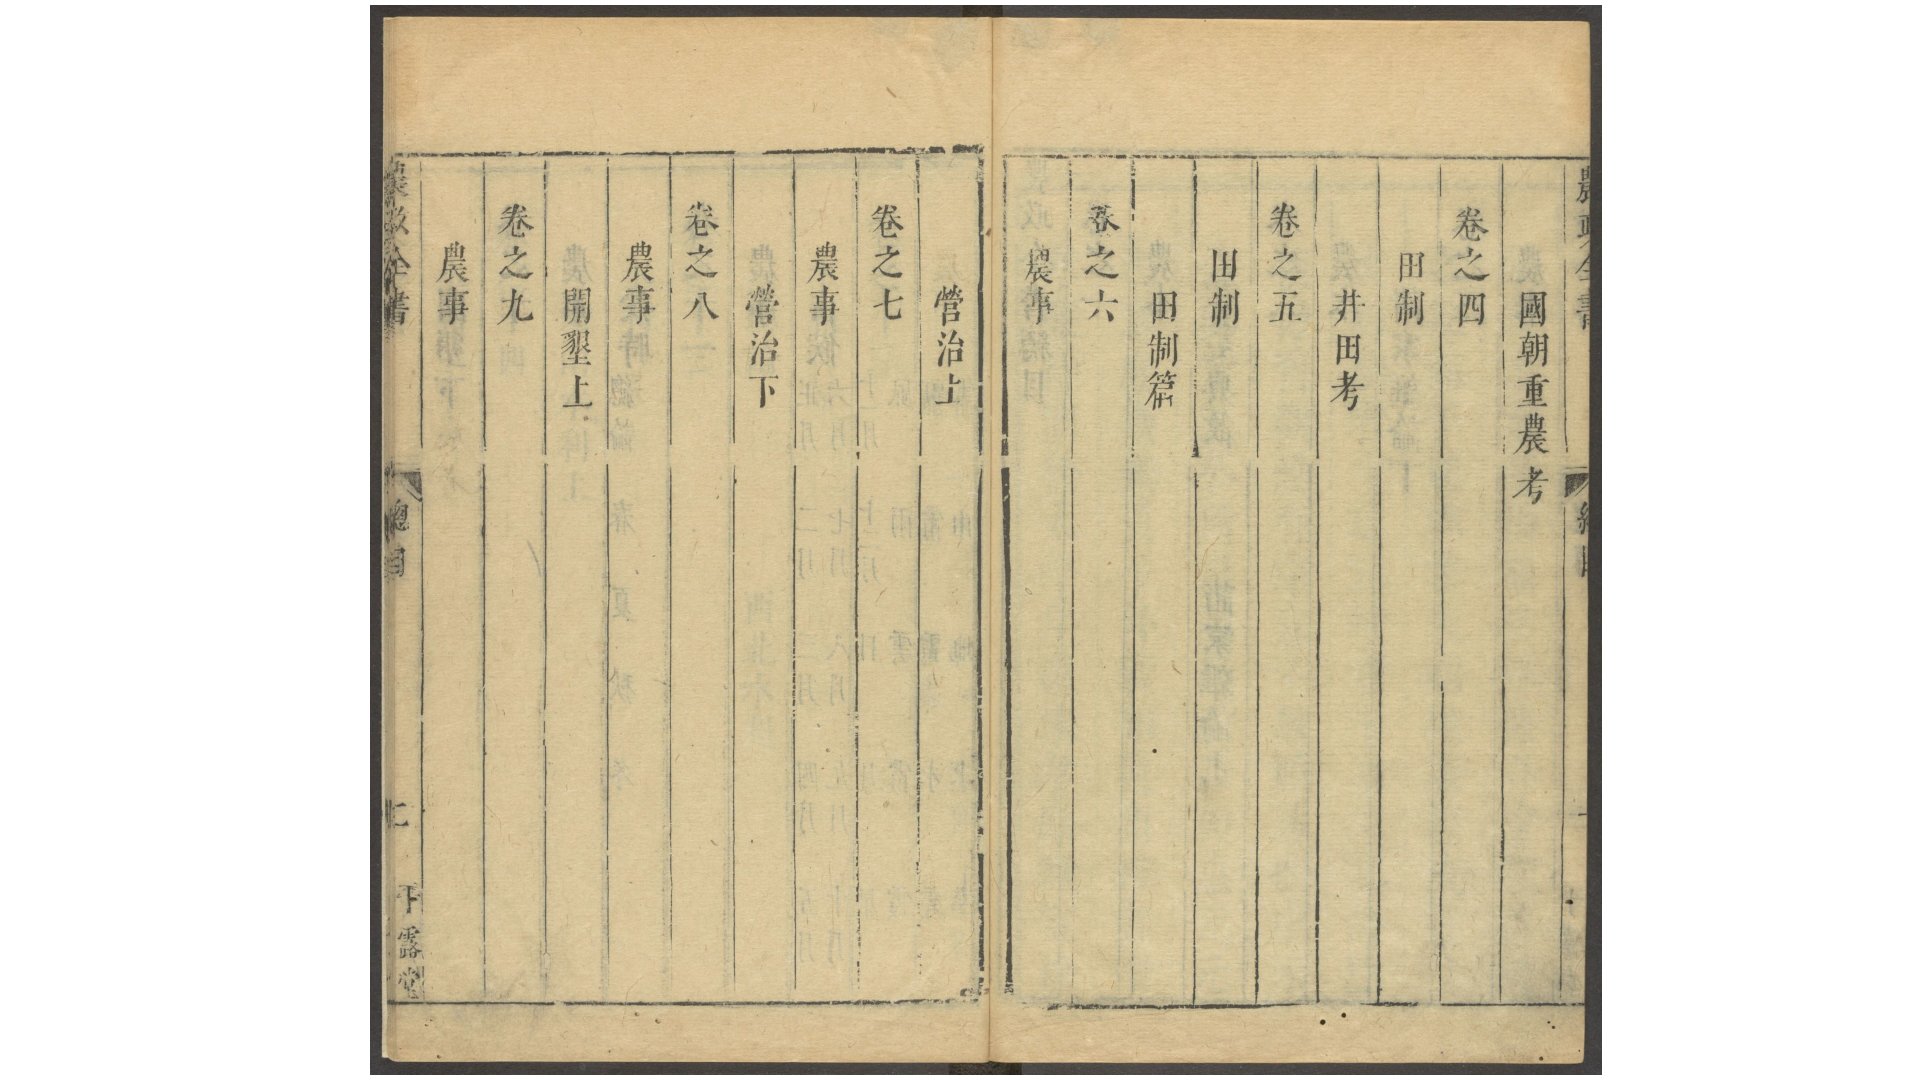 國朝重農考
卷之四
田制
井田考
卷之五
田制
田制篇
卷之六
農事
營治上
卷之七
農事
營治下
卷之八
農事
開墾上
卷之九
農事
農政全書
總目
二
平露堂